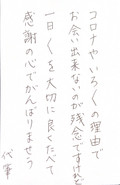 コロナやいろ〱の理由で
お会い出来ないのが残念ですけれど
一日〱を大切に良くたべて
感謝の心でがんばりませう
代筆